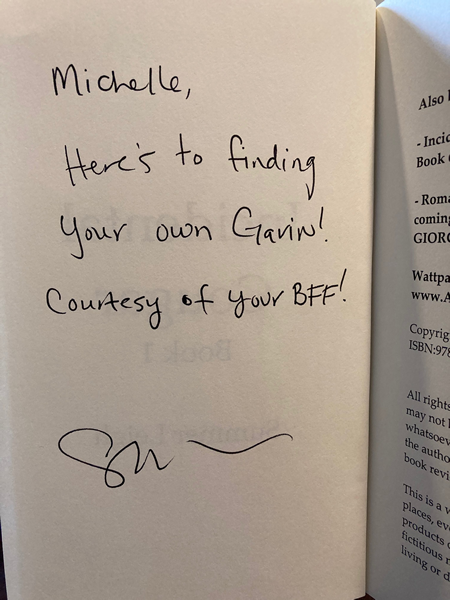 Michelle,
Here's to finding
your own Gavin!
Courtesy of your BFF!
Also
- Inci
Book
- Roma
coming
GIORG
Wattpa
www.A
Copyrig
ISBN:978
All rights
may not
whatsoev
the autho
book revi
This is a w
places, eve
products o
fictitious
living or d